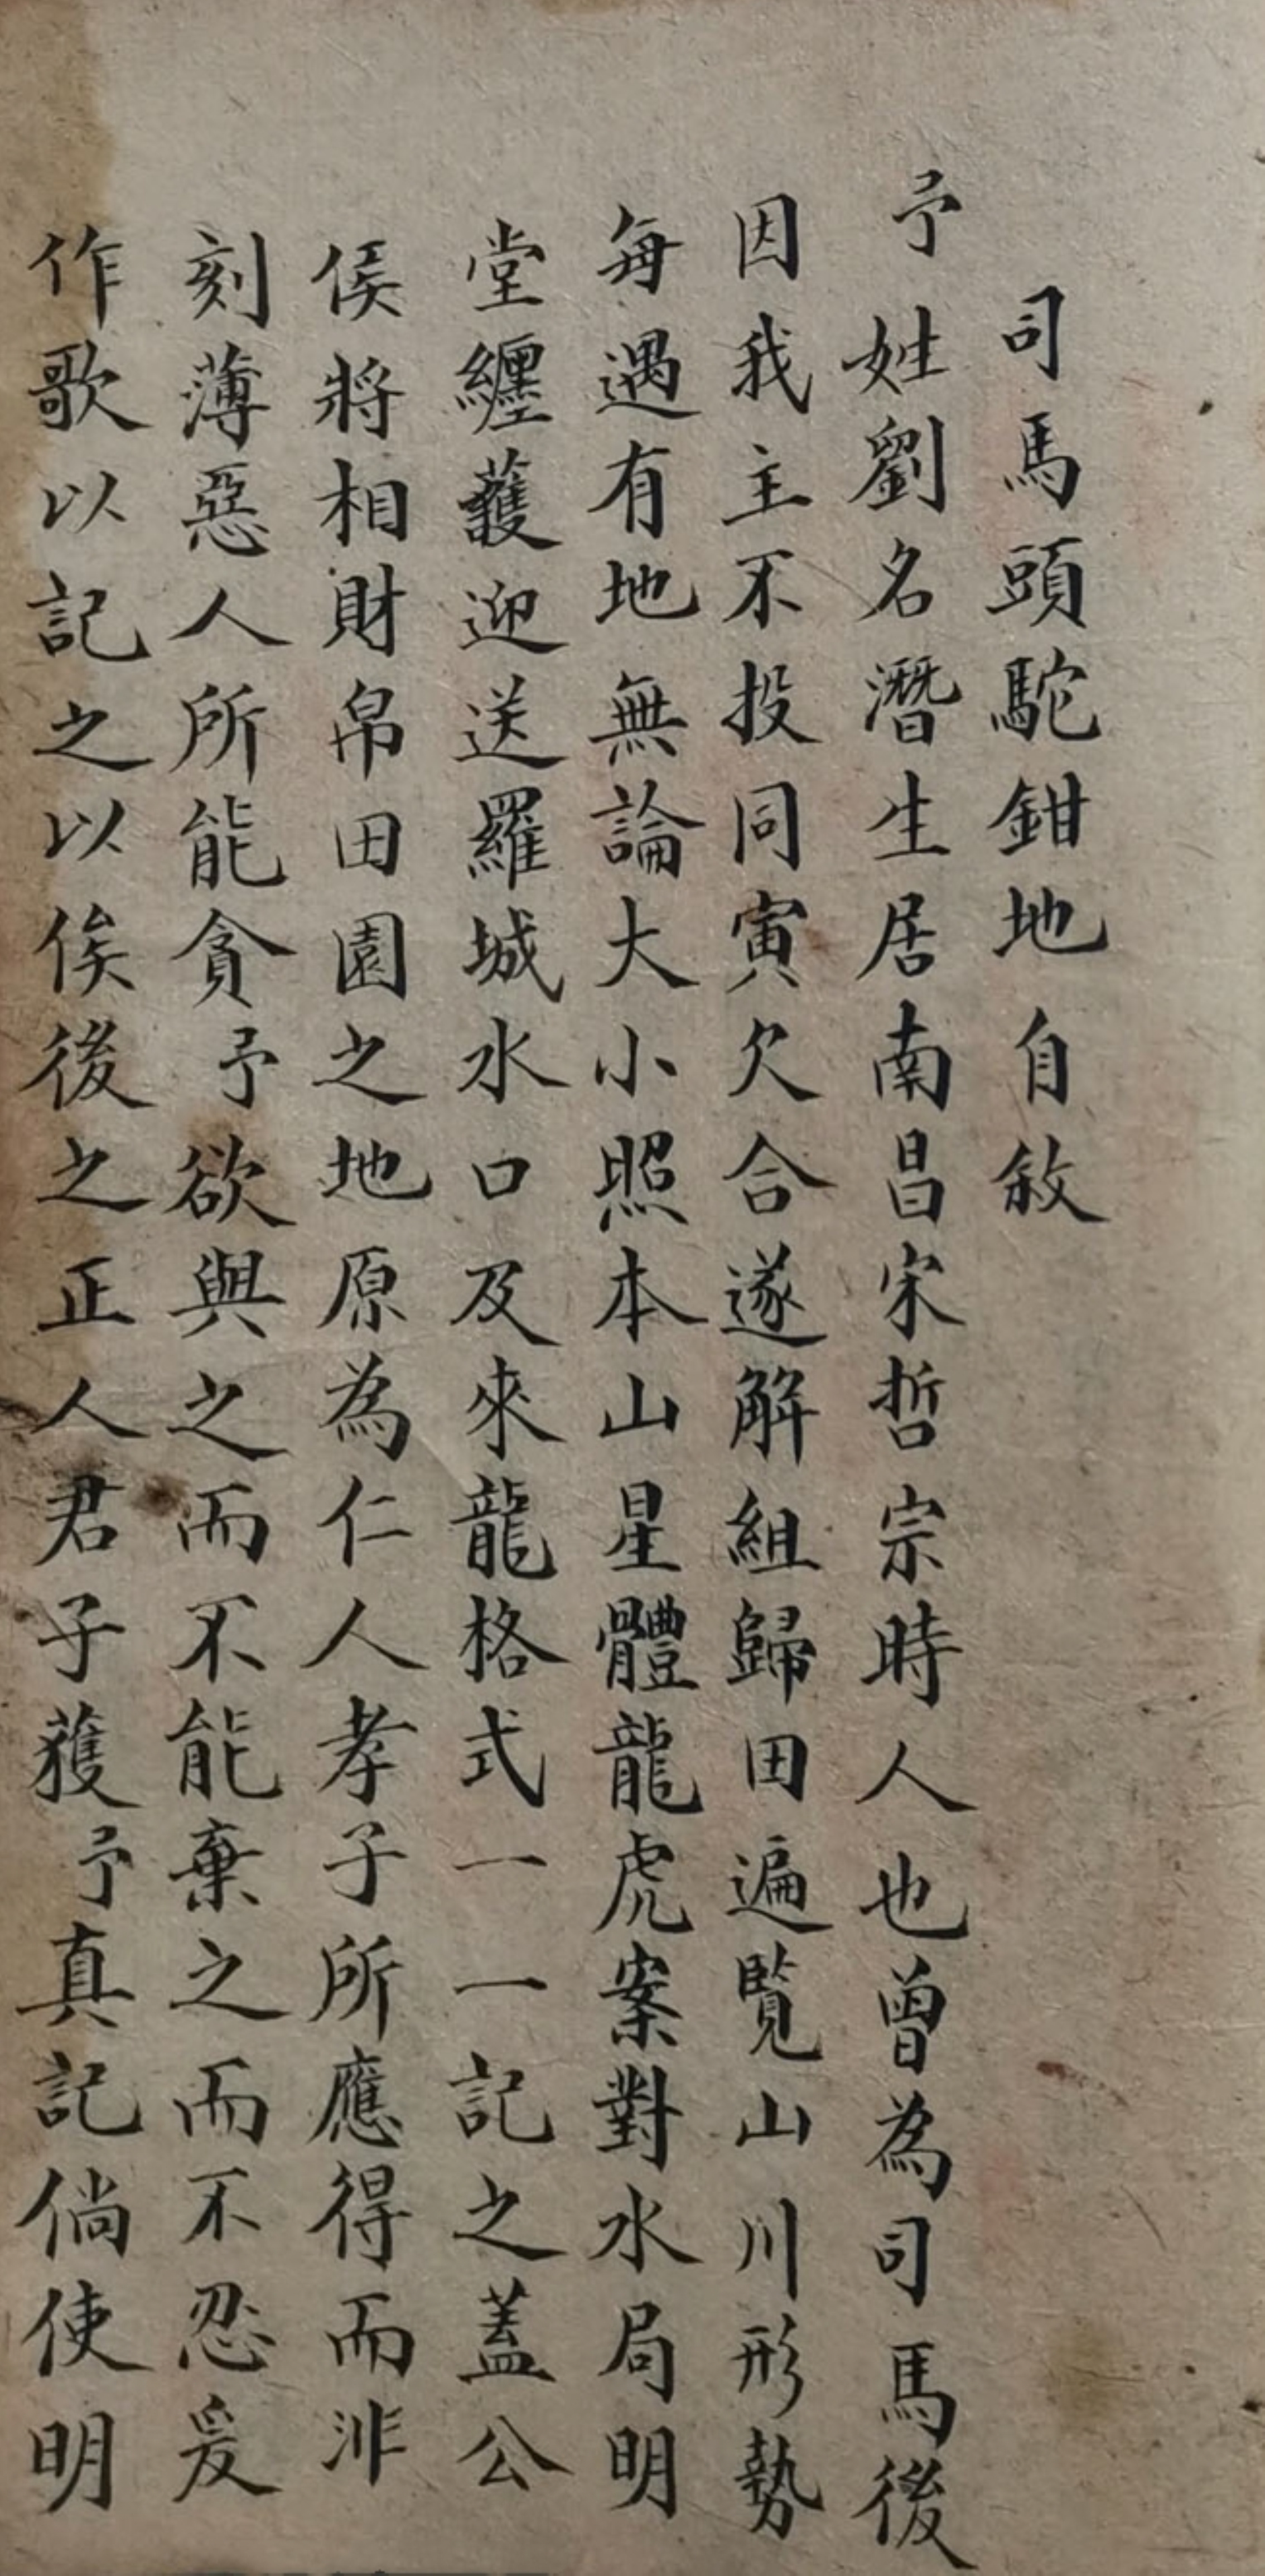 司馬頭駝鉗地自敘
予姓劉名潛生居南昌宋哲宗時人也曾為司馬後
因我主不投同寅欠合遂解組歸田遍覽山川形勢
每遇有地無論大小照本山星體龍虎案對水局明
堂纏護迎送羅城水口及來龍格式一一記之蓋公
侯將相財帛田園之地原為仁人孝子所應得而非
刻薄惡人所能貪予欲與之而不能棄之而不忍爰
作歌以記之以俟後之正人君子獲予真記倘使明